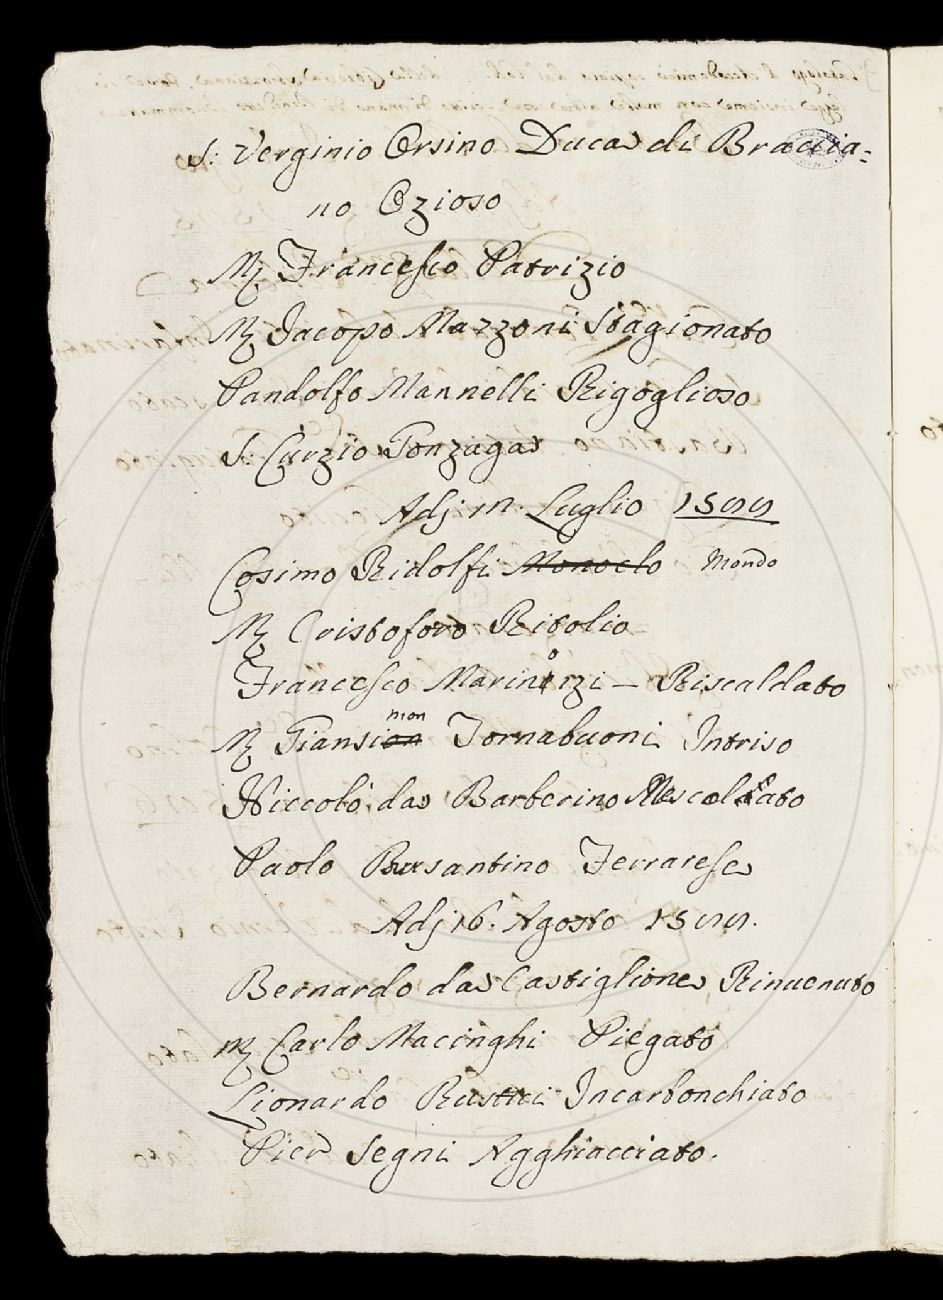 S: Verginio Orsino Duca di Braccia=
no Ozioso
M Francesco Patrizio
M Jacopo Mazzoni Stagionato
Pandolfo Mannelli Rigoglioso
S: Curzio Gonzaga
Adj Luglio
Cosimo Ridolfi Mondo
M Cristoforo
Francesco Riscaldato
M Giansimon Tornabuoni Intriso
Niccolò da Barberino
Paolo Ferrarese
Adj 16. Agosto
Bernardo da Castiglione Rinuenuto
M Carlo Macinghi Piegato
Lionardo Rustici Incarbonchiato
Pier Segni Agghiacciato.